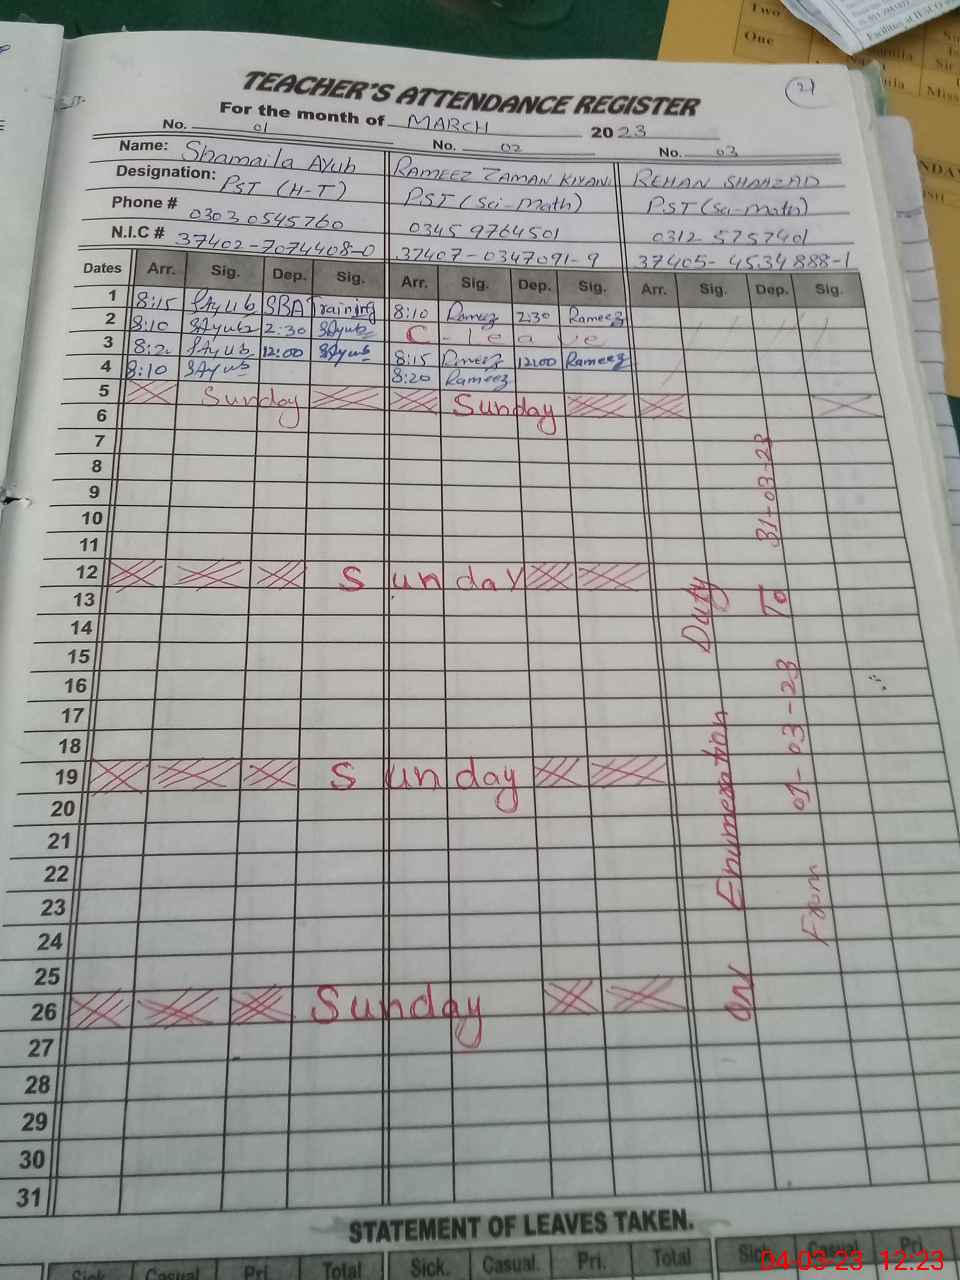 21
TEACHER'S ATTENDANCE REGISTER
For the month of MARCH 2023
No. 01 No. 02 No. 03
Name: Shamaila Ayub RAMEEZ ZAMAN KIYANI REHAN SHAHZAD
Designation: PST (H-T) PST (Sci-Math) PST (Sci-Math)
Phone # 03030545760 0345 9764501 0312 5757401
N.I.C # 37402-7074408-0 37407-0347091-9 37405-4534888-1
Dates Arr. Sig. Dep. Sig. Arr. Sig. Dep. Sig. Arr. Sig. Dep. Sig.
1 8:15 SAyub SBA Training 8:10 Rameez 2:30 Rameez
2 8:10 SAyub 2:30 SAyub C-leave
3 8:2 SAyub 12:00 SAyub 8:15 Rameez 12:00 Rameez
4 8:10 SAyub 8:20 Rameez
5 Sunday Sunday
6
7
8
9
10
11
12 Sunday
13
14
15
16
17
18
19 Sunday
20
21
22
23
24
25
26 Sunday
27
28
29
30
31
On Enumeration Duty
From 01-03-23 To 31-03-23
STATEMENT OF LEAVES TAKEN.
Sick Casual Pri. Total Sick. Casual. Pri. Total Sick Casual Pri.
04-03-23 12:23
Two
One
Miss
Facilities at